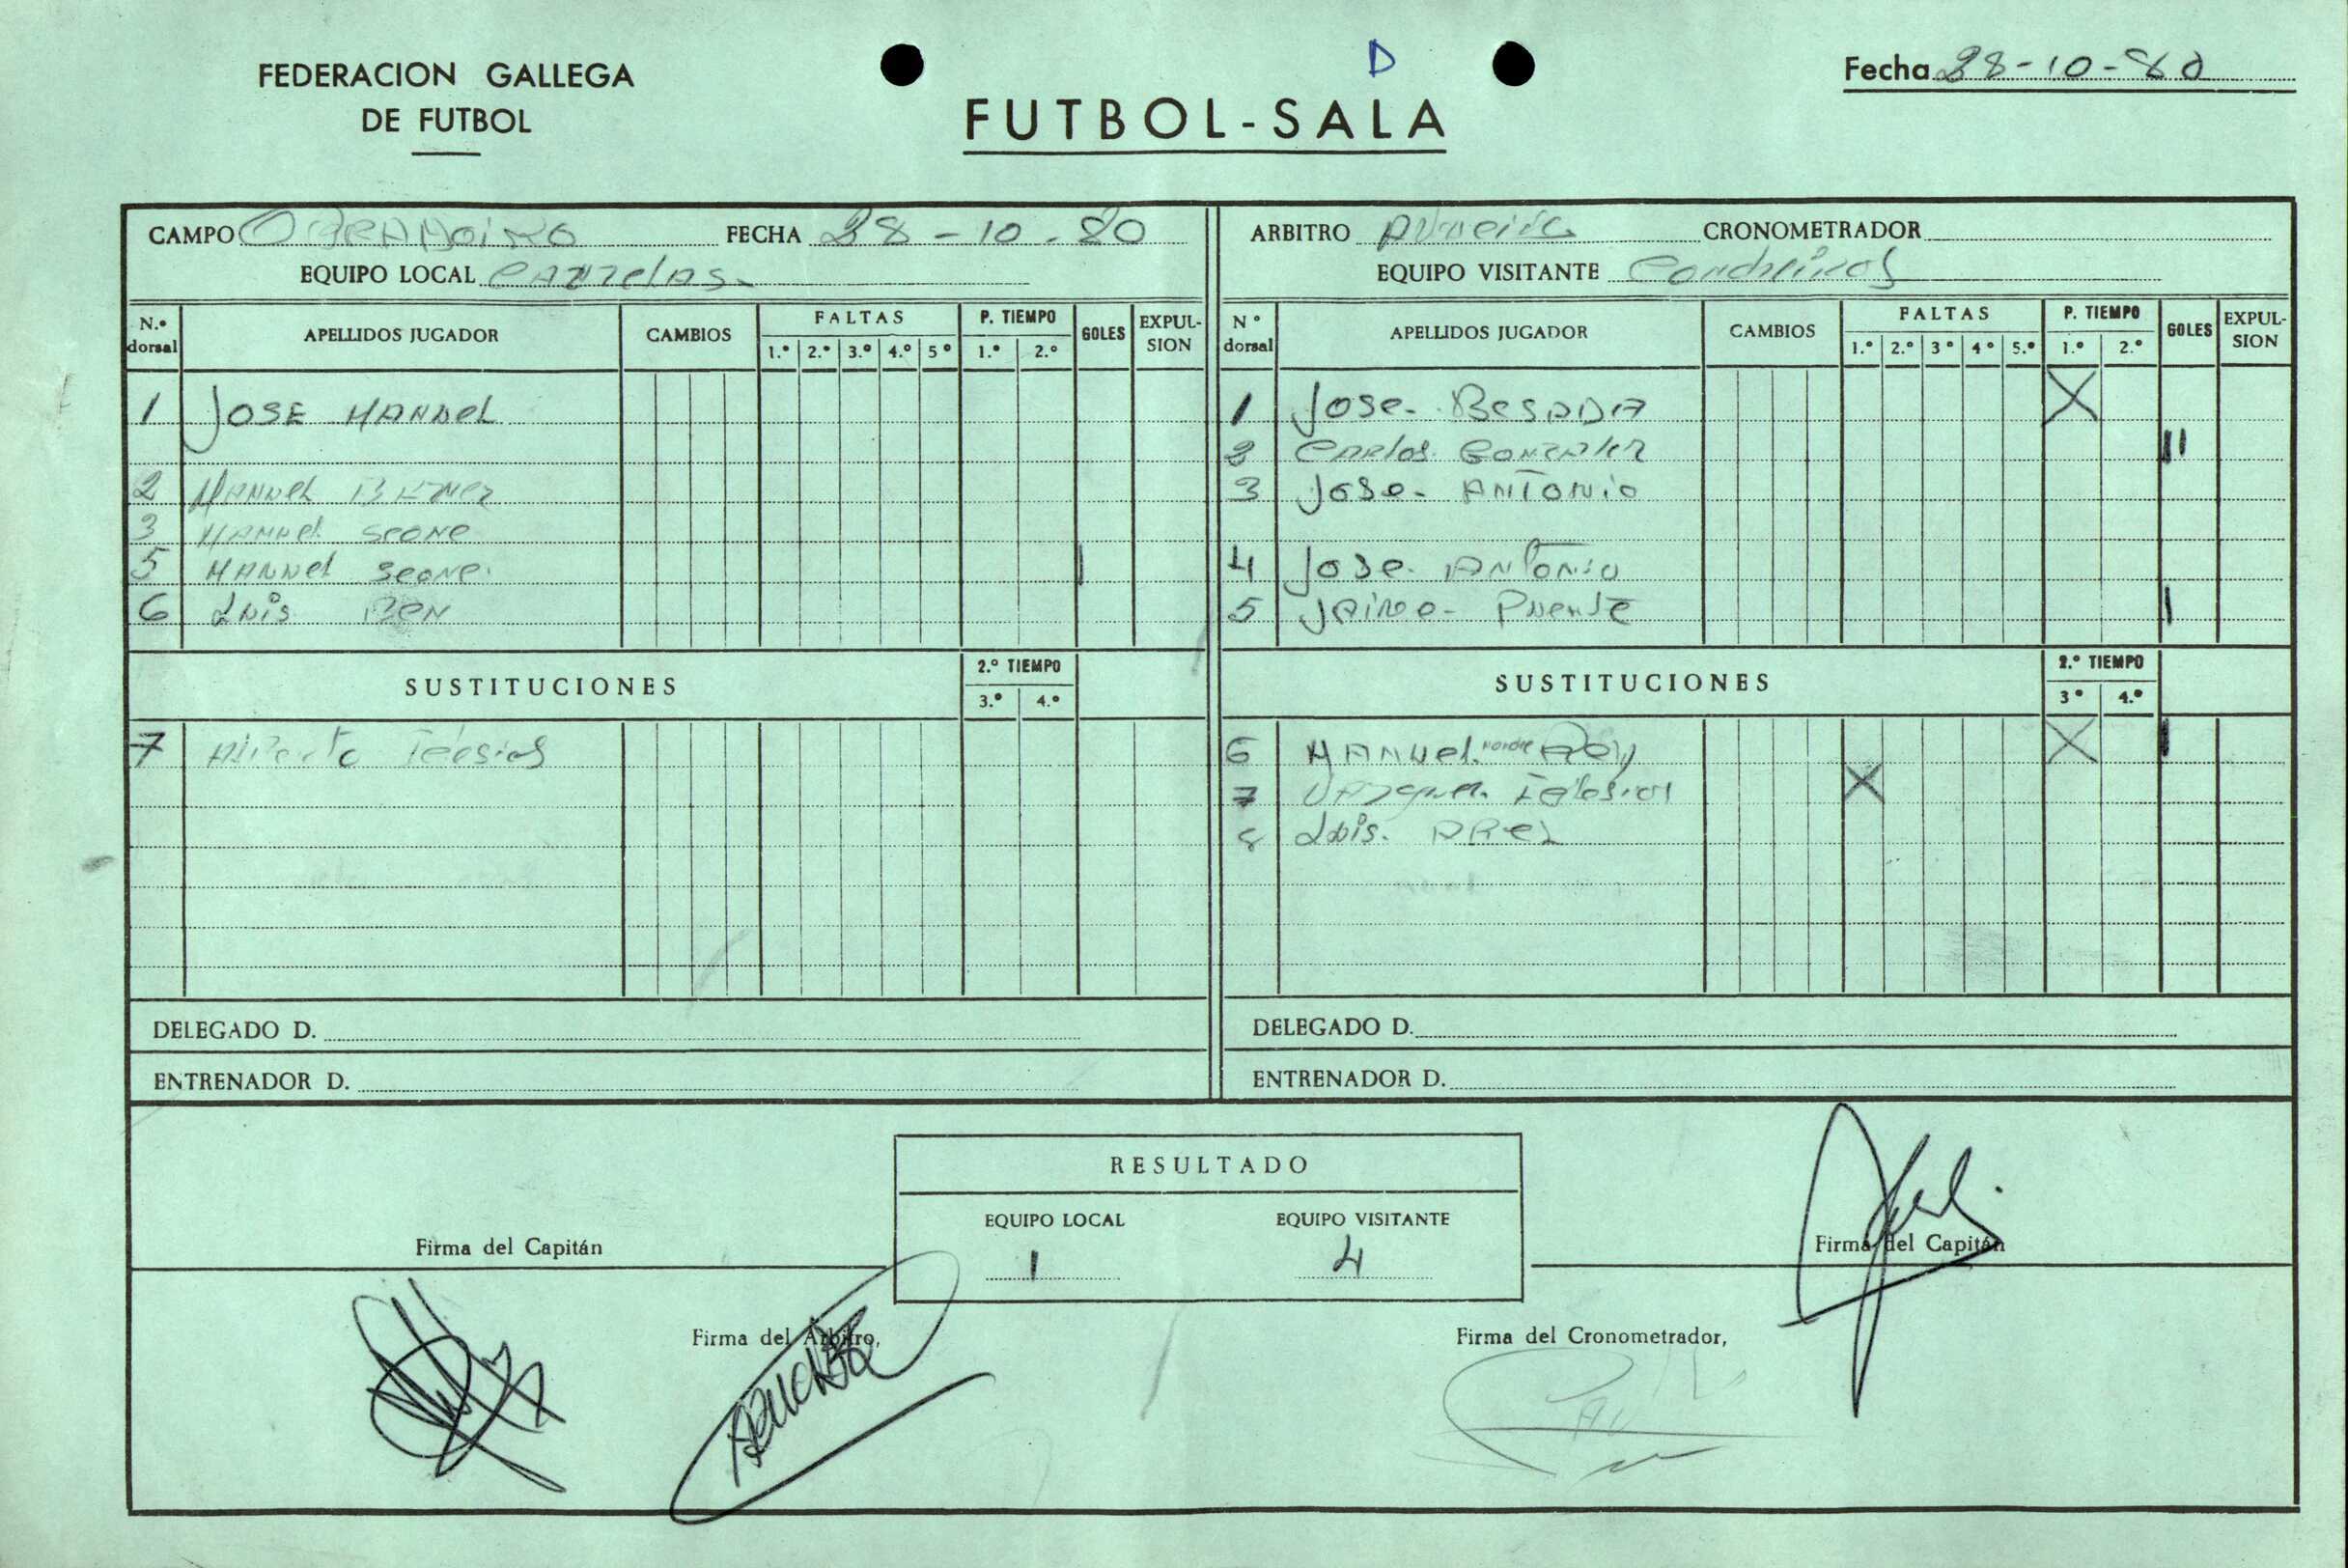 D
FEDERACION GALLEGA
DE FUTBOL
FUTBOL-SALA
Fecha 28-10-80
CAMPO OBRADOIRO FECHA 28-10-80
EQUIPO LOCAL
ARBITRO CRONOMETRADOR
EQUIPO VISITANTE
N.º dorsal APELLIDOS JUGADOR CAMBIOS FALTAS P. TIEMPO GOLES EXPULSION
1.º 2.º 3.º 4.º 5º 1.º 2.º
1 JOSE MANUEL
2 MANUEL
3 MANUEL SEONE
5 MANUEL SEONE I
6 LUIS REY
SUSTITUCIONES 2.º TIEMPO
3.º 4.º
7 Alberto Iglesias
DELEGADO D.
ENTRENADOR D.
Nº dorsal APELLIDOS JUGADOR CAMBIOS FALTAS P. TIEMPO GOLES EXPULSION
1.º 2.º 3º 4º 5.º 1.º 2.º
1 Jose BESADA X
2 Carlos Gonzalez II
3 Jose ANTONIO
4 Jose ANTONIO
5 Puente I
SUSTITUCIONES 2.º TIEMPO
3º 4.º
6 MANUEL REY X I
7 Iglesias X
8 Luis
DELEGADO D.
ENTRENADOR D.
RESULTADO
EQUIPO LOCAL EQUIPO VISITANTE
1 4
Firma del Capitán
Firma del Capitán
Firma del Arbitro,
Firma del Cronometrador,